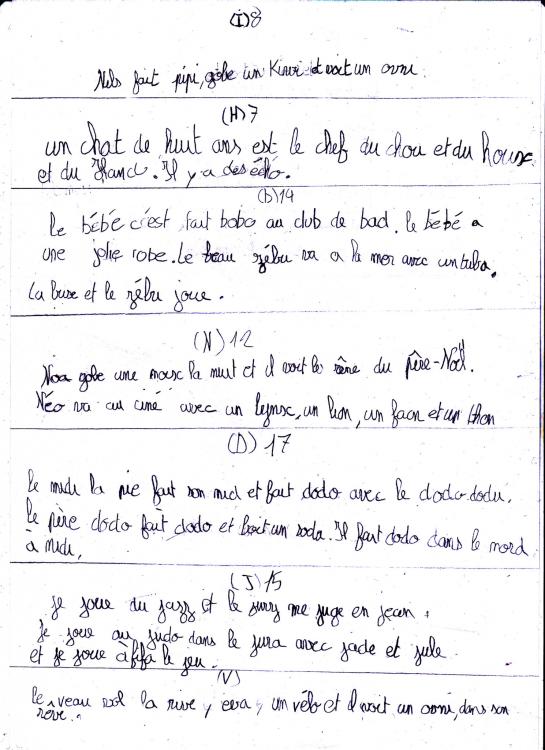 (I)8
Nils fait pipi, gobe un Kiwi et voit un ovni.
(H)7
un chat de huit ans est le chef du chou et du houx
et du . Il y a des écho.
(b)14
Le bébé c'est fait bobo au club de bad. le bébé a
une jolie robe. Le beau zébu va a la mer avec un tuba.
La buse et le zébu joue.
(N)12
Noa gobe une noix la nuit et il voit les rêne du père-Noël.
Néo va au ciné avec un lynx, un lion, un faon et un thon
(D) 17
le midi la pie fait son nid et fait dodo avec le dodo dodu.
le père dodo fait dodo et boit un soda. Il fait dodo dans le nord
à midi.
(J)15
je joue du jazz et le jury me juge en jean.
Je joue au judo dans le jura avec jade et jule.
et je joue à fifa le jeu.
(V)
le veau vol la rive, eva, un vélo et il voit un ovni, dans son
rêve.